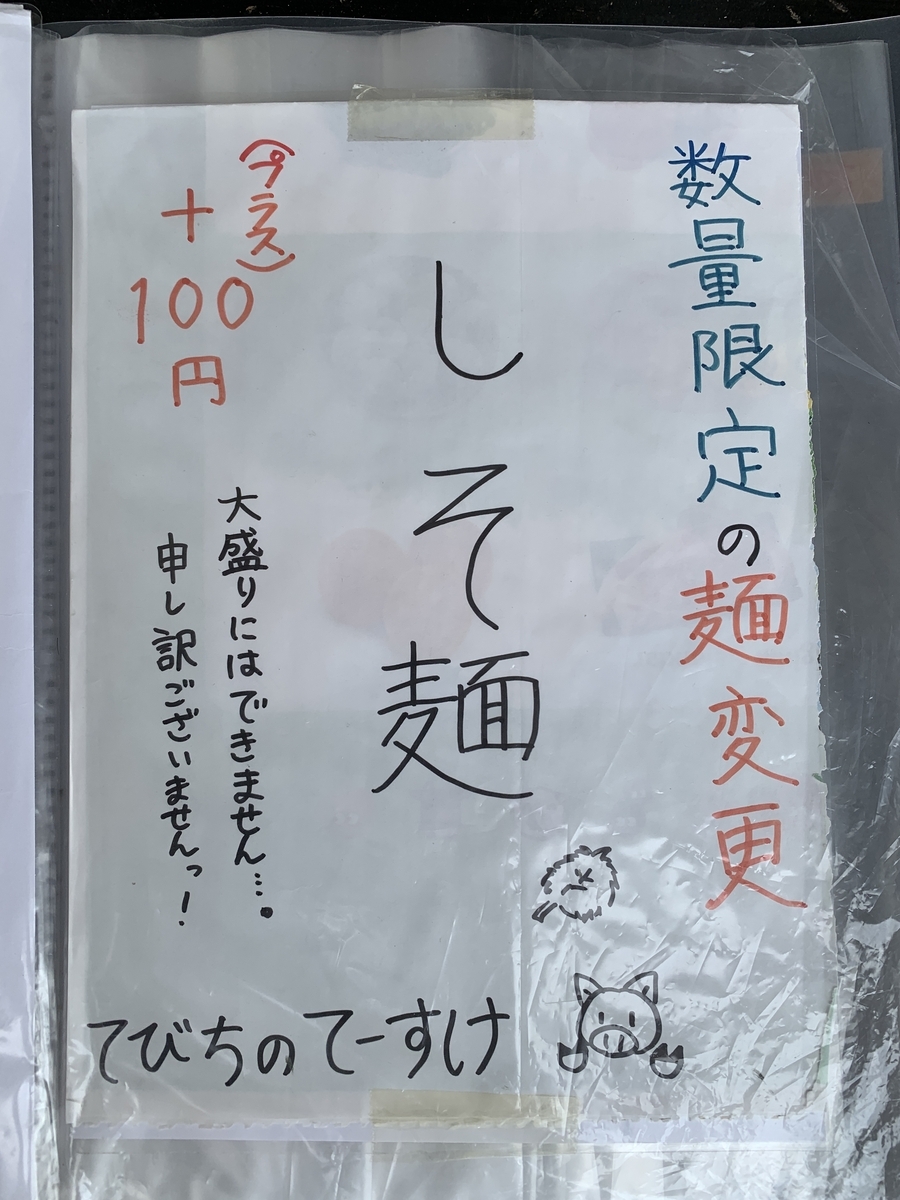 数量限定の麺変更
しそ麺
(プラス)
+100円
大盛りにはできません…。
申し訳ございませんっ!
てびちのてーすけ